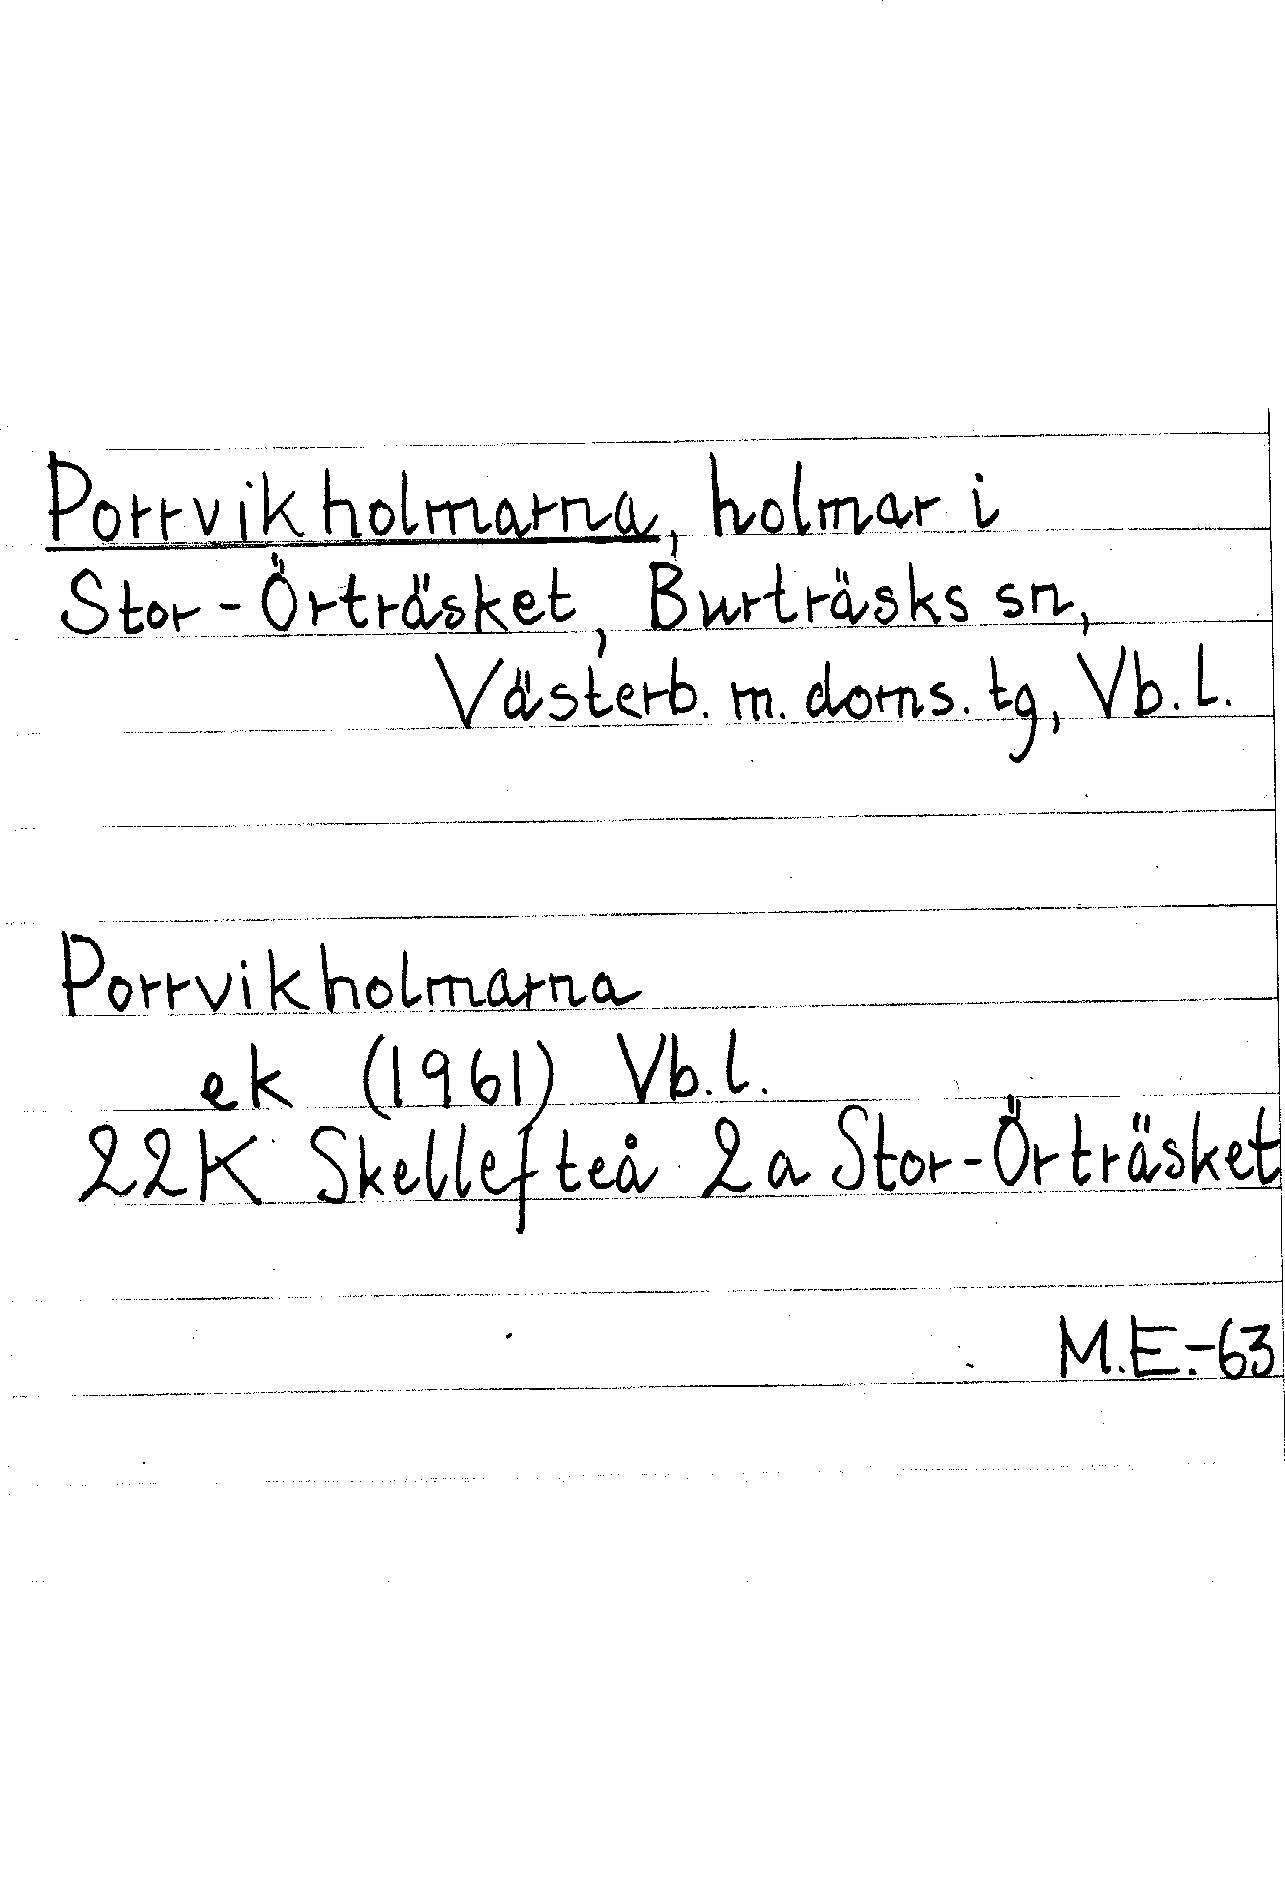 Porrvikholmarna, holmar i
Stor-Örträsket, Burträsks sn,
Västerb. m. doms. tg, Vb. l.
Porrvikholmarna
ek (1961) Vb. l.
22K Skellefteå 2a Stor-Örträsket
M.E.-63